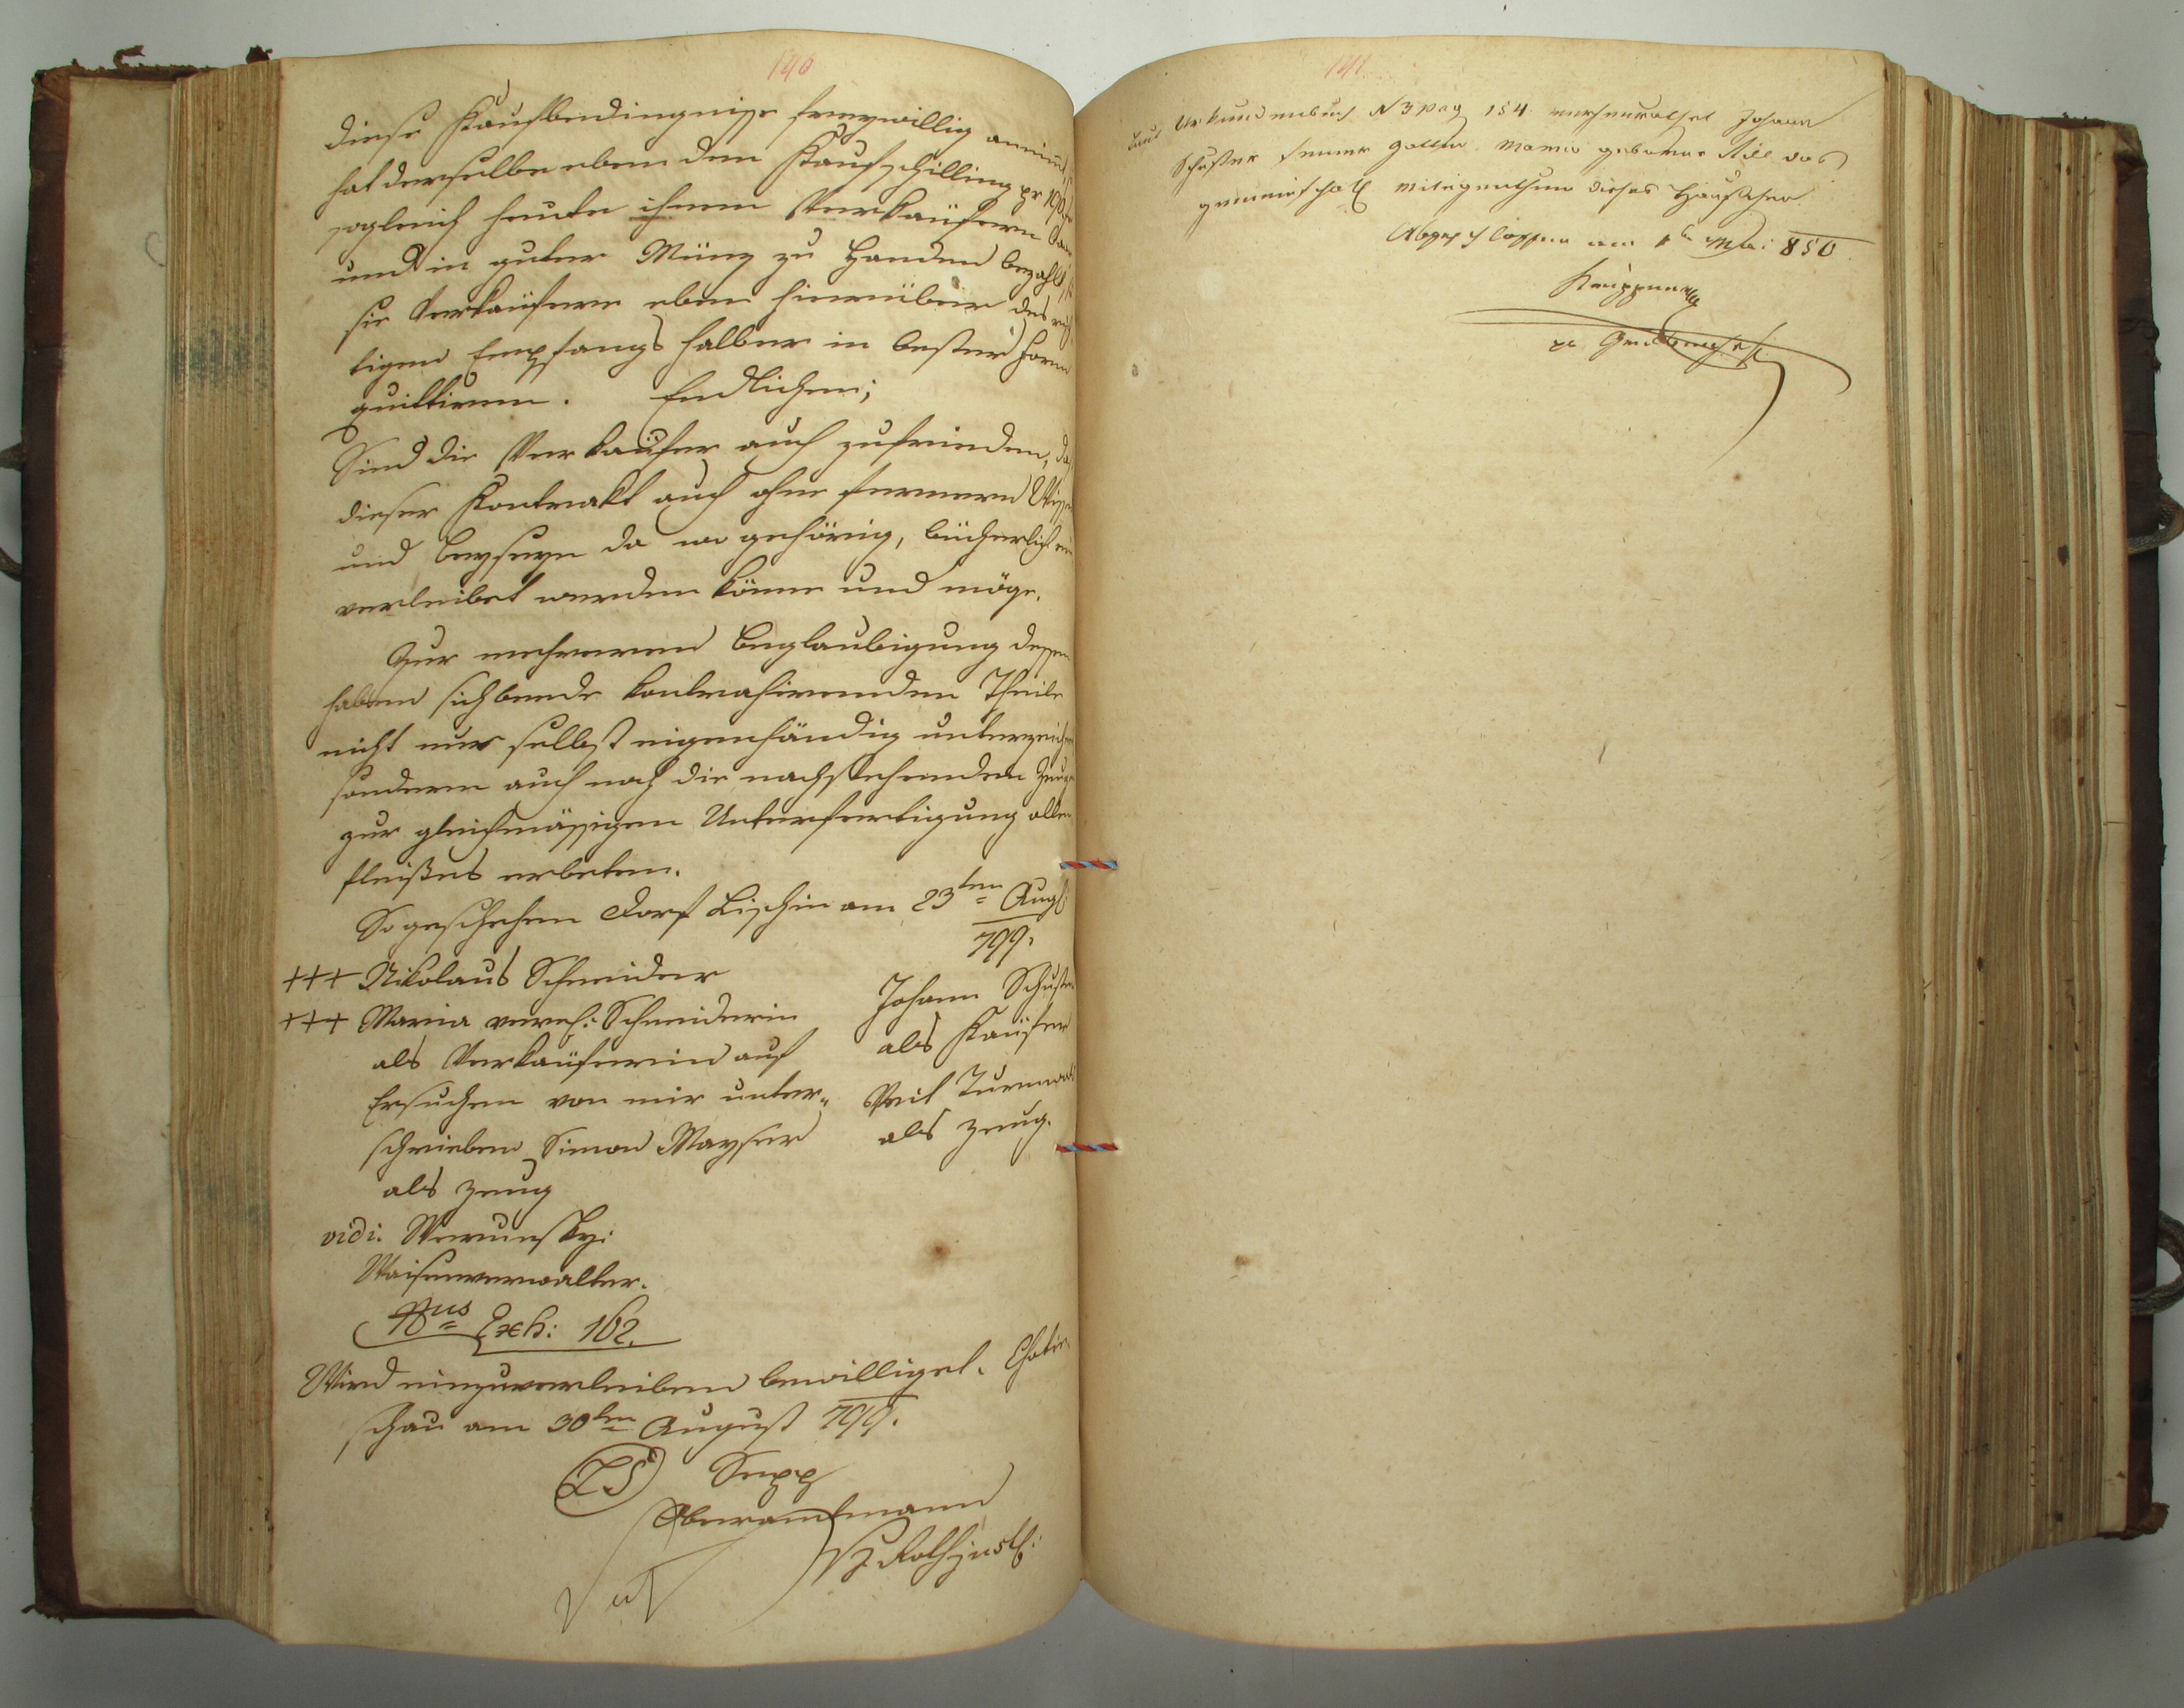 140
diese Kaufbedingnisse freywillig annimt,
hat derselbe eben den Kaufschilling pr 190 f
sogleich heute ihnen Verkäufern baar
und in guter Münz zu Handen bezahlt,
sie Verkäufere eben hierüber des rich
tigen Empfangs halber in bester Form
quittiren. Endlichen;
Sind die Verkäufer auch zufrieden, daß
dieser Kontrakt auch ohne fernern Wissen
und Beyseyn da wo gehörig, bücherlich ein
verleibet werden könne und möge.
Zur mehreren Beglaubigung dessen
haben sich beede kontrahirenden Theile
nicht nur selbst eigenhändig unterzeichnet
sondern auch noch die nachstehenden Zeugen
zur gleichmässigen Unterfertigung allen
fleißes erbeten.
So geschehen Dorf Lischin am 23ten Augt:
799.
+++ Nikolaus Schneider
+++ Maria vereh: Schneiderin
als Verkäuferin auf
Ersuchen von mir unter„
schrieben Simon Mayser
als Zeug
Johann Schuster
als Käufer
Veit Turnwald
als Zeug.
vidi:
Waisenverwalter.
Nus Exh: 162.
Wird einzuverleiben bewilliget. Chotie„
schau am 30ten August 799.
(LS) Sepp
Oberamtmann
141
Laut Urkundenbuch N 3 pag 154 verheurathet Johann
Schuster seiner Gattin Maria geborne das
gemeinschaftl Miteigenthum dieses Häuschen
Abgeschlossen am 1ten Mai 850